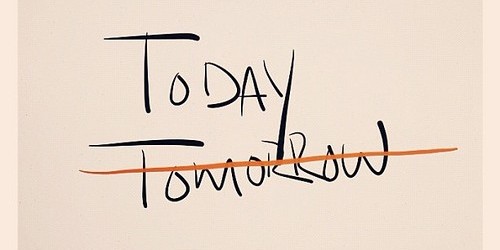 TODAY
TOMORROW